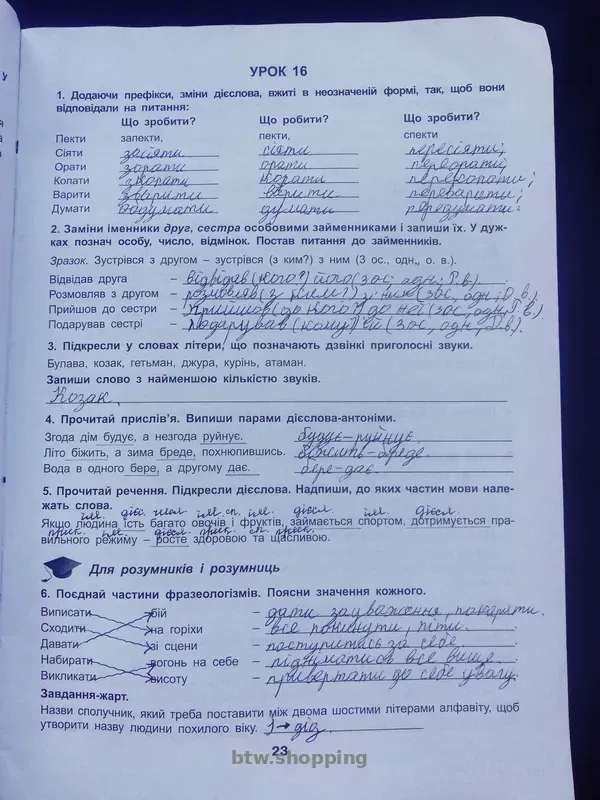 УРОК 16
1. Додаючи префікси, зміни дієслова, вжиті в неозначеній формі, так, щоб вони
відповідали на питання:
Що зробити? Що робити? Що зробити?
Пекти запекти, пекти, спекти
Сіяти засіяти сіяти пересіяти;
Орати зорати орати переорати;
Копати
Варити зварити варити переварити;
Думати подумати думати передумати.
2. Заміни іменники друг, сестра особовими займенниками і запиши їх. У дуж-
ках познач особу, число, відмінок. Постав питання до займенників.
Зразок. Зустрівся з другом – зустрівся (з ким?) з ним (3 ос., одн., о. в.).
Відвідав друга – відвідав (кого?) його (3 ос, одн, Р. в.)
Розмовляв з другом – розмовляв (з ким?) з ним (3 ос, одн, О. в.)
Прийшов до сестри – Прийшов (до кого?) до неї (3 ос, одн, Р. в.)
Подарував сестрі – Подарував (кому?) їй (3 ос, одн, Д. в.)
3. Підкресли у словах літери, що позначають дзвінкі приголосні звуки.
Булава, козак, гетьман, джура, курінь, атаман.
Запиши слово з найменшою кількістю звуків.
Козак.
4. Прочитай прислів'я. Випиши парами дієслова-антоніми.
Згода дім будує, а незгода руйнує. будує-руйнує.
Літо біжить, а зима бреде, похнюпившись. біжить-бреде
Вода в одного бере, а другому дає. бере-дає.
5. Прочитай речення. Підкресли дієслова. Надпиши, до яких частин мови нале-
жать слова.
ім. дієс. ім. сп. ім. дієсл. ім. дієсл.
Якщо людина їсть багато овочів і фруктів, займається спортом, дотримується пра-
прик. ім. дієсл. прик. сп. прикм.
вильного режиму – росте здоровою та щасливою.
Для розумників і розумниць
6. Поєднай частини фразеологізмів. Поясни значення кожного.
Виписати бій – дати зауваження, покарати.
Сходити на горіхи – все покинути, піти.
Давати зі сцени – поступитись за себе.
Набирати вогонь на себе – підніматися все вище.
Викликати висоту – привертати до себе увагу.
Завдання-жарт.
Назви сполучник, який треба поставити між двома шостими літерами алфавіту, щоб
утворити назву людини похилого віку. І → дід.
23
btw.shopping